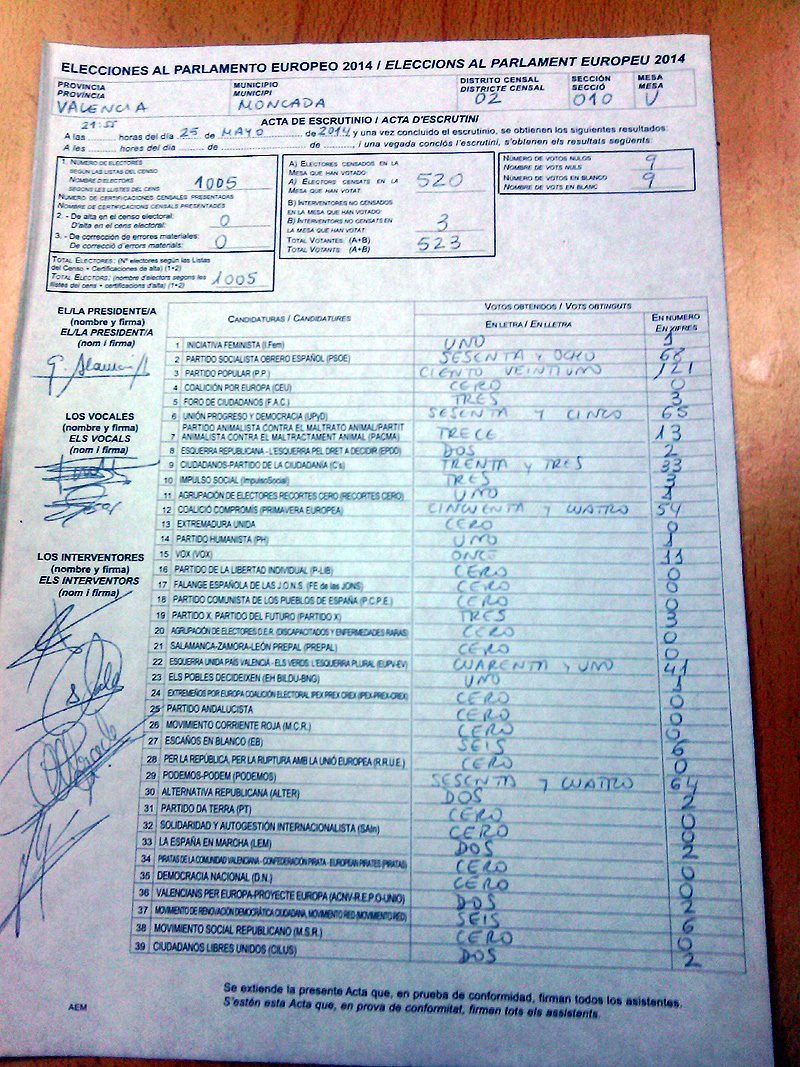 ELECCIONES AL PARLAMENTO EUROPEO 2014 / ELECCIONS AL PARLAMENT EUROPEU 2014
PROVINCIA MUNICIPIO DISTRITO CENSAL SECCIÓN MESA
PROVÍNCIA MUNICIPI DISTRICTE CENSAL SECCIÓ MESA
VALENCIA MONCADA 02 010 U
ACTA DE ESCRUTINIO / ACTA D'ESCRUTINI
A las 21:55 horas del día 25 de MAYO de 2014 y una vez concluido el escrutinio, se obtienen los siguientes resultados:
A les horas del día de de , i una vegada conclòs l'escrutini, s'obtenen els resultats següents:
1. NÚMERO DE ELECTORES
SEGÚN LAS LISTAS DEL CENSO
NOMBRE D'ELECTORS
SEGONS LES LLISTES DEL CENS 1005
NÚMERO DE CERTIFICACIONES CENSALES PRESENTADAS
NOMBRE DE CERTIFICACIONS CENSALS PRESENTADES
2. - De alta en el censo electoral:
D'alta en el cens electoral: 0
3. - De corrección de errores materiales:
De correcció d'errors materials: 0
TOTAL ELECTORES: (Nº electores según las Listas
del Censo + Certificaciones de alta) (1+2)
TOTAL ELECTORS: (nombre d'electors segons les
llistes del cens + certificacions d'alta) (1+2) 1005
A) ELECTORES CENSADOS EN LA
MESA QUE HAN VOTADO:
A) ELECTORS CENSATS EN LA
MESA QUE HAN VOTAT: 520
B) INTERVENTORES NO CENSADOS
EN LA MESA QUE HAN VOTADO:
B) INTERVENTORS NO CENSATS EN
LA MESA QUE HAN VOTAT: 3
TOTAL VOTANTES: (A+B)
TOTAL VOTANTS: (A+B) 523
NÚMERO DE VOTOS NULOS
NOMBRE DE VOTS NULS 9
NÚMERO DE VOTOS EN BLANCO
NOMBRE DE VOTS EN BLANC 9
EL/LA PRESIDENTE/A
(nombre y firma)
EL/LA PRESIDENT/A
(nom i firma)
LOS VOCALES
(nombre y firma)
ELS VOCALS
(nom i firma)
LOS INTERVENTORES
(nombre y firma)
ELS INTERVENTORS
(nom i firma)
CANDIDATURAS / CANDIDATURES VOTOS OBTENIDOS / VOTS OBTINGUTS
EN LETRA / EN LLETRA EN NÚMERO
EN XIFRES
1 INICIATIVA FEMINISTA (I.Fem) UNO 1
2 PARTIDO SOCIALISTA OBRERO ESPAÑOL (PSOE) SESENTA Y OCHO 68
3 PARTIDO POPULAR (P.P.) CIENTO VEINTIUNO 121
4 COALICIÓN POR EUROPA (CEU) CERO 0
5 FORO DE CIUDADANOS (F.A.C.) TRES 3
6 UNIÓN PROGRESO Y DEMOCRACIA (UPyD) SESENTA Y CINCO 65
PARTIDO ANIMALISTA CONTRA EL MALTRATO ANIMAL/PARTIT
7 ANIMALISTA CONTRA EL MALTRACTAMENT ANIMAL (PACMA) TRECE 13
8 ESQUERRA REPUBLICANA - L'ESQUERRA PEL DRET A DECIDIR (EPDD) DOS 2
9 CIUDADANOS-PARTIDO DE LA CIUDADANÍA (C's) TRENTA Y TRES 33
10 IMPULSO SOCIAL (ImpulsoSocial) TRES 3
11 AGRUPACIÓN DE ELECTORES RECORTES CERO (RECORTES CERO) UNO 1
12 COALICIÓ COMPROMÍS (PRIMAVERA EUROPEA) CINCUENTA Y CUATRO 54
13 EXTREMADURA UNIDA CERO 0
14 PARTIDO HUMANISTA (PH) UNO 1
15 VOX (VOX) ONCE 11
16 PARTIDO DE LA LIBERTAD INDIVIDUAL (P-LIB) CERO 0
17 FALANGE ESPAÑOLA DE LAS J.O.N.S. (FE de las JONS) CERO 0
18 PARTIDO COMUNISTA DE LOS PUEBLOS DE ESPAÑA (P.C.P.E.) CERO 0
19 PARTIDO X, PARTIDO DEL FUTURO (PARTIDO X) TRES 3
20 AGRUPACIÓN DE ELECTORES D.E.R. (DISCAPACITADOS Y ENFERMEDADES RARAS) CERO 0
21 SALAMANCA-ZAMORA-LEÓN PREPAL (PREPAL) CERO 0
22 ESQUERRA UNIDA PAÍS VALENCIÀ - ELS VERDS: L'ESQUERRA PLURAL (EUPV-EV) CUARENTA Y UNO 41
23 ELS POBLES DECIDEIXEN (EH BILDU-BNG) UNO 1
24 EXTREMEÑOS POR EUROPA COALICIÓN ELECTORAL IPEX PREX CREX (IPEX-PREX-CREX) CERO 0
25 PARTIDO ANDALUCISTA CERO 0
26 MOVIMIENTO CORRIENTE ROJA (M.C.R.) CERO 0
27 ESCAÑOS EN BLANCO (EB) SEIS 6
28 PER LA REPÚBLICA, PER LA RUPTURA AMB LA UNIÓ EUROPEA (R.R.U.E.) CERO 0
29 PODEMOS-PODEM (PODEMOS) SESENTA Y CUATRO 64
30 ALTERNATIVA REPUBLICANA (ALTER) DOS 2
31 PARTIDO DA TERRA (PT) CERO 0
32 SOLIDARIDAD Y AUTOGESTIÓN INTERNACIONALISTA (SAIn) CERO 0
33 LA ESPAÑA EN MARCHA (LEM) DOS 2
34 PIRATAS DE LA COMUNIDAD VALENCIANA - CONFEDERACIÓN PIRATA - EUROPEAN PIRATES (PIRATAS) CERO 0
35 DEMOCRACIA NACIONAL (D.N.) CERO 0
36 VALENCIANS PER EUROPA-PROYECTE EUROPA (ACNV-R.E.P.O-UNIO) DOS 2
37 MOVIMIENTO DE RENOVACIÓN DEMOCRÁTICA CIUDADANA, MOVIMIENTO RED (MOVIMIENTO RED) SEIS 6
38 MOVIMIENTO SOCIAL REPUBLICANO (M.S.R.) CERO 0
39 CIUDADANOS LIBRES UNIDOS (CILUS) DOS 2
Se extiende la presente Acta que, en prueba de conformidad, firman todos los asistentes.
S'estén esta Acta que, en prova de conformitat, firmen tots els assistents.
AEM